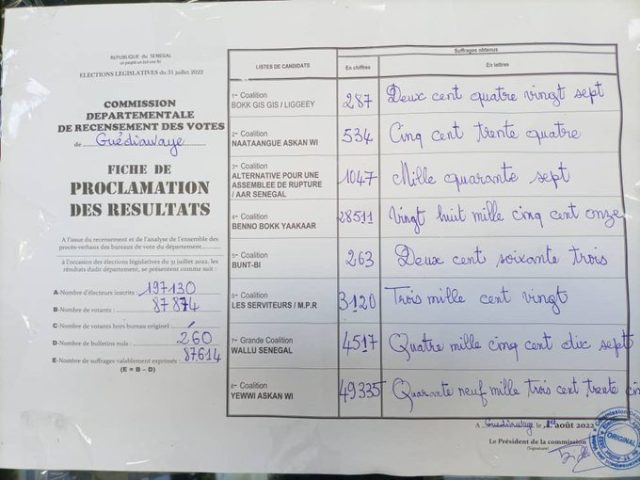 REPUBLIQUE DU SENEGAL
ELECTIONS LEGISLATIVES du 31 juillet 2022
COMMISSION
DEPARTEMENTALE
DE RECENSEMENT DES VOTES
de Guédiawaye
FICHE DE
PROCLAMATION
DES RESULTATS
A l'issue du recensement et de l'analyse de l'ensemble des
procès-verbaux des bureaux de vote du département
à l'occasion des élections législatives du 31 juillet 2022, les
résultats dudit département, se présentent comme suit :
A-Nombre d'électeurs inscrits : 197130
B-Nombre de votants : 87874
C-Nombre de votants hors bureau originel :
D-Nombre de bulletins nuls : 260
E-Nombre de suffrages valablement exprimés : 87614
(E = B – D)
LISTES DE CANDIDATS
Suffrages obtenus
En chiffres
En lettres
1re Coalition
BOKK GIS GIS / LIGGEEY
287
Deux cent quatre vingt sept
2e Coalition
NAATAANGUE ASKAN WI
534
Cinq cent trente quatre
3e Coalition
ALTERNATIVE POUR UNE
ASSEMBLEE DE RUPTURE
/ AAR SENEGAL
1047
Mille quarante sept
4e Coalition
BENNO BOKK YAAKAAR
28511
Vingt huit mille cinq cent onze
5e Coalition
BUNT-BI
263
Deux cent soixante trois
6e Coalition
LES SERVITEURS / M.P.R
3120
Trois mille cent vingt
7e Grande Coalition
WALLU SENEGAL
4517
Quatre mille cinq cent dix sept
8e Coalition
YEWWI ASKAN WI
49335
Quarante neuf mille trois cent trente
A Guédiawaye le 1er août 2022
Le Président de la commission
(Signature)
ORIGINAL